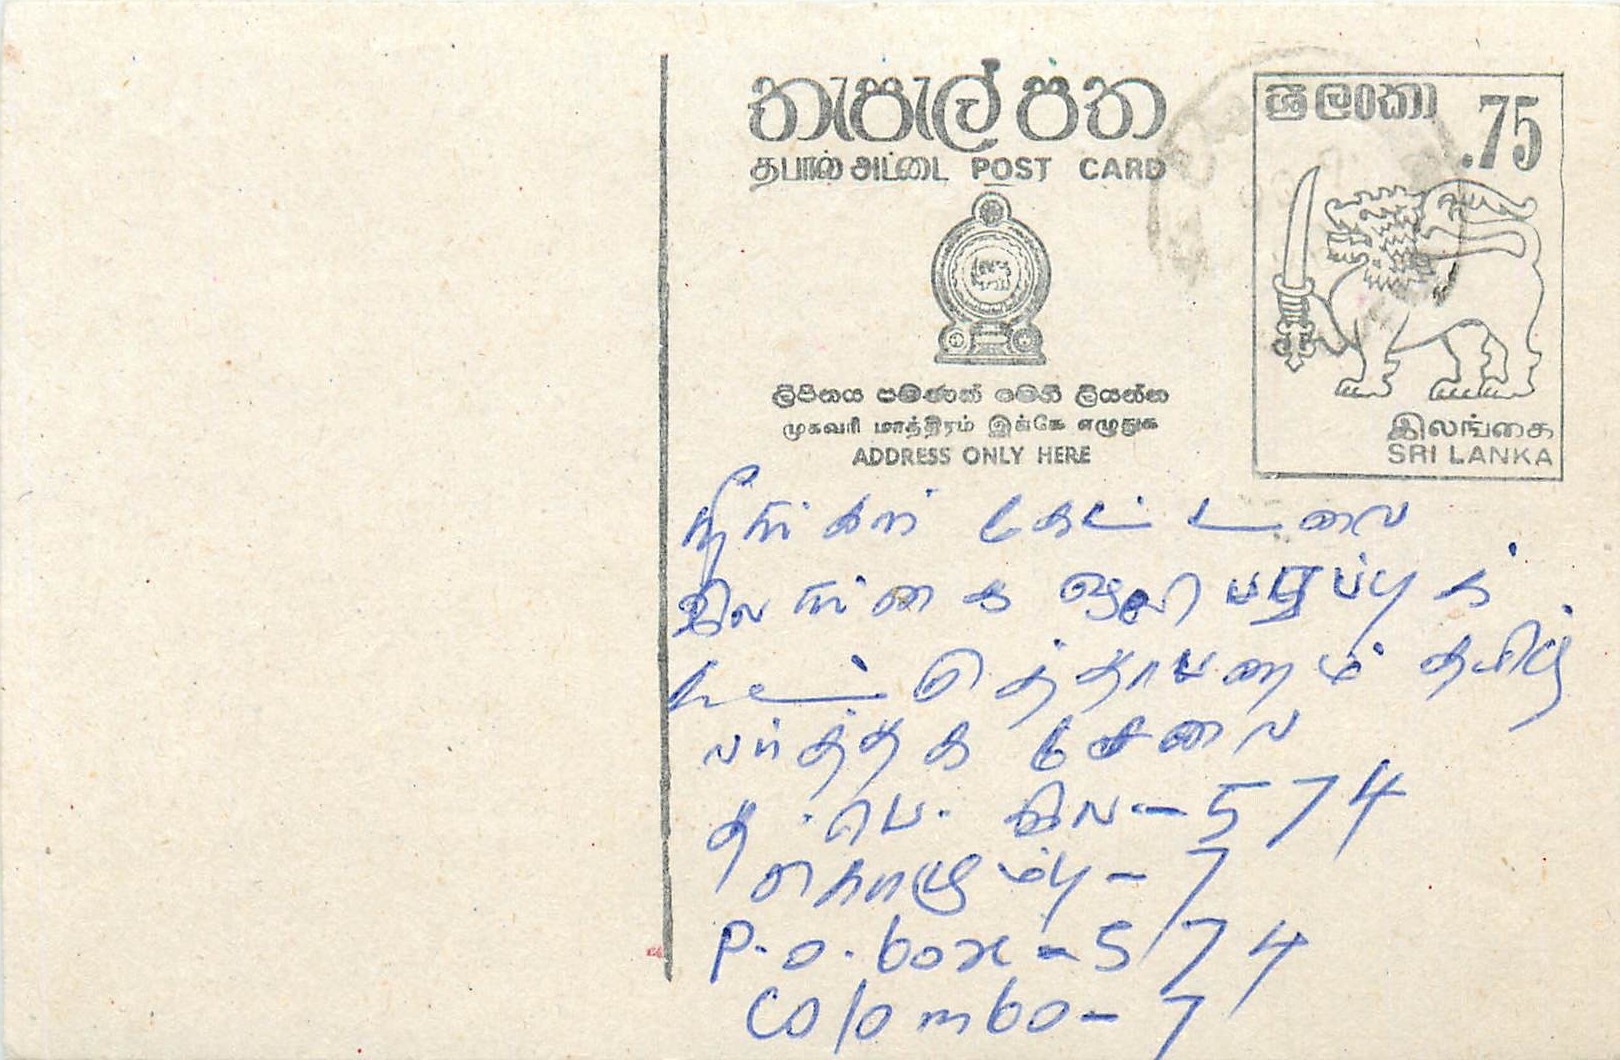 තැපැල් පත
தபால் அட்டை POST CARD
ශ්‍රී ලංකා .75
ලිපිනය පමණක් මෙහි ලියන්න
முகவரி மாத்திரம் இங்கே எழுதுக
ADDRESS ONLY HERE
இலங்கை
SRI LANKA
நீங்கள் கேட்டவை
இலங்கை ஒலிபரப்புக்
கூட்டுத்தாபனம் தமிழ்
வர்த்தக சேவை
த.பெ. இல - 574
கொழும்பு - 7
P.O. box - 574
Colombo - 7